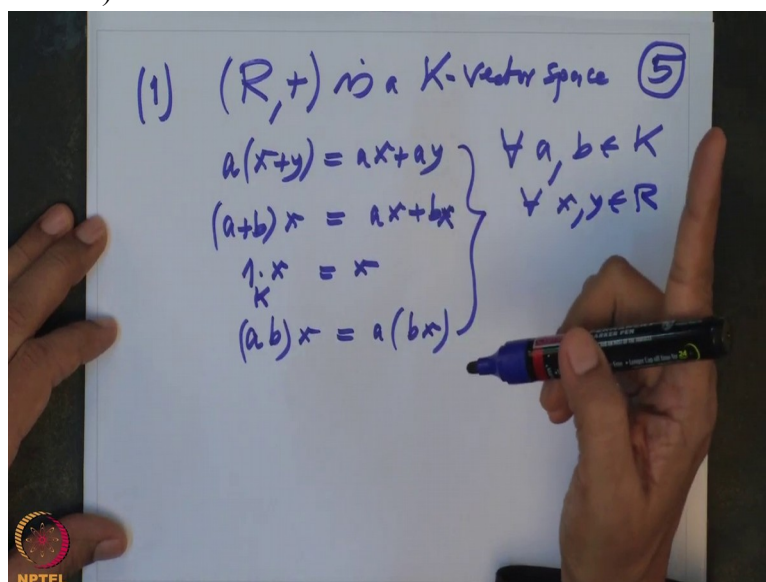 (1) (R,+) is a K-vector space ⑤
a(x+y) = ax+ay
(a+b)x = ax+bx
1_K·x = x
(ab)x = a(bx)
∀ a, b ∈ K
∀ x, y ∈ R
NPTEL